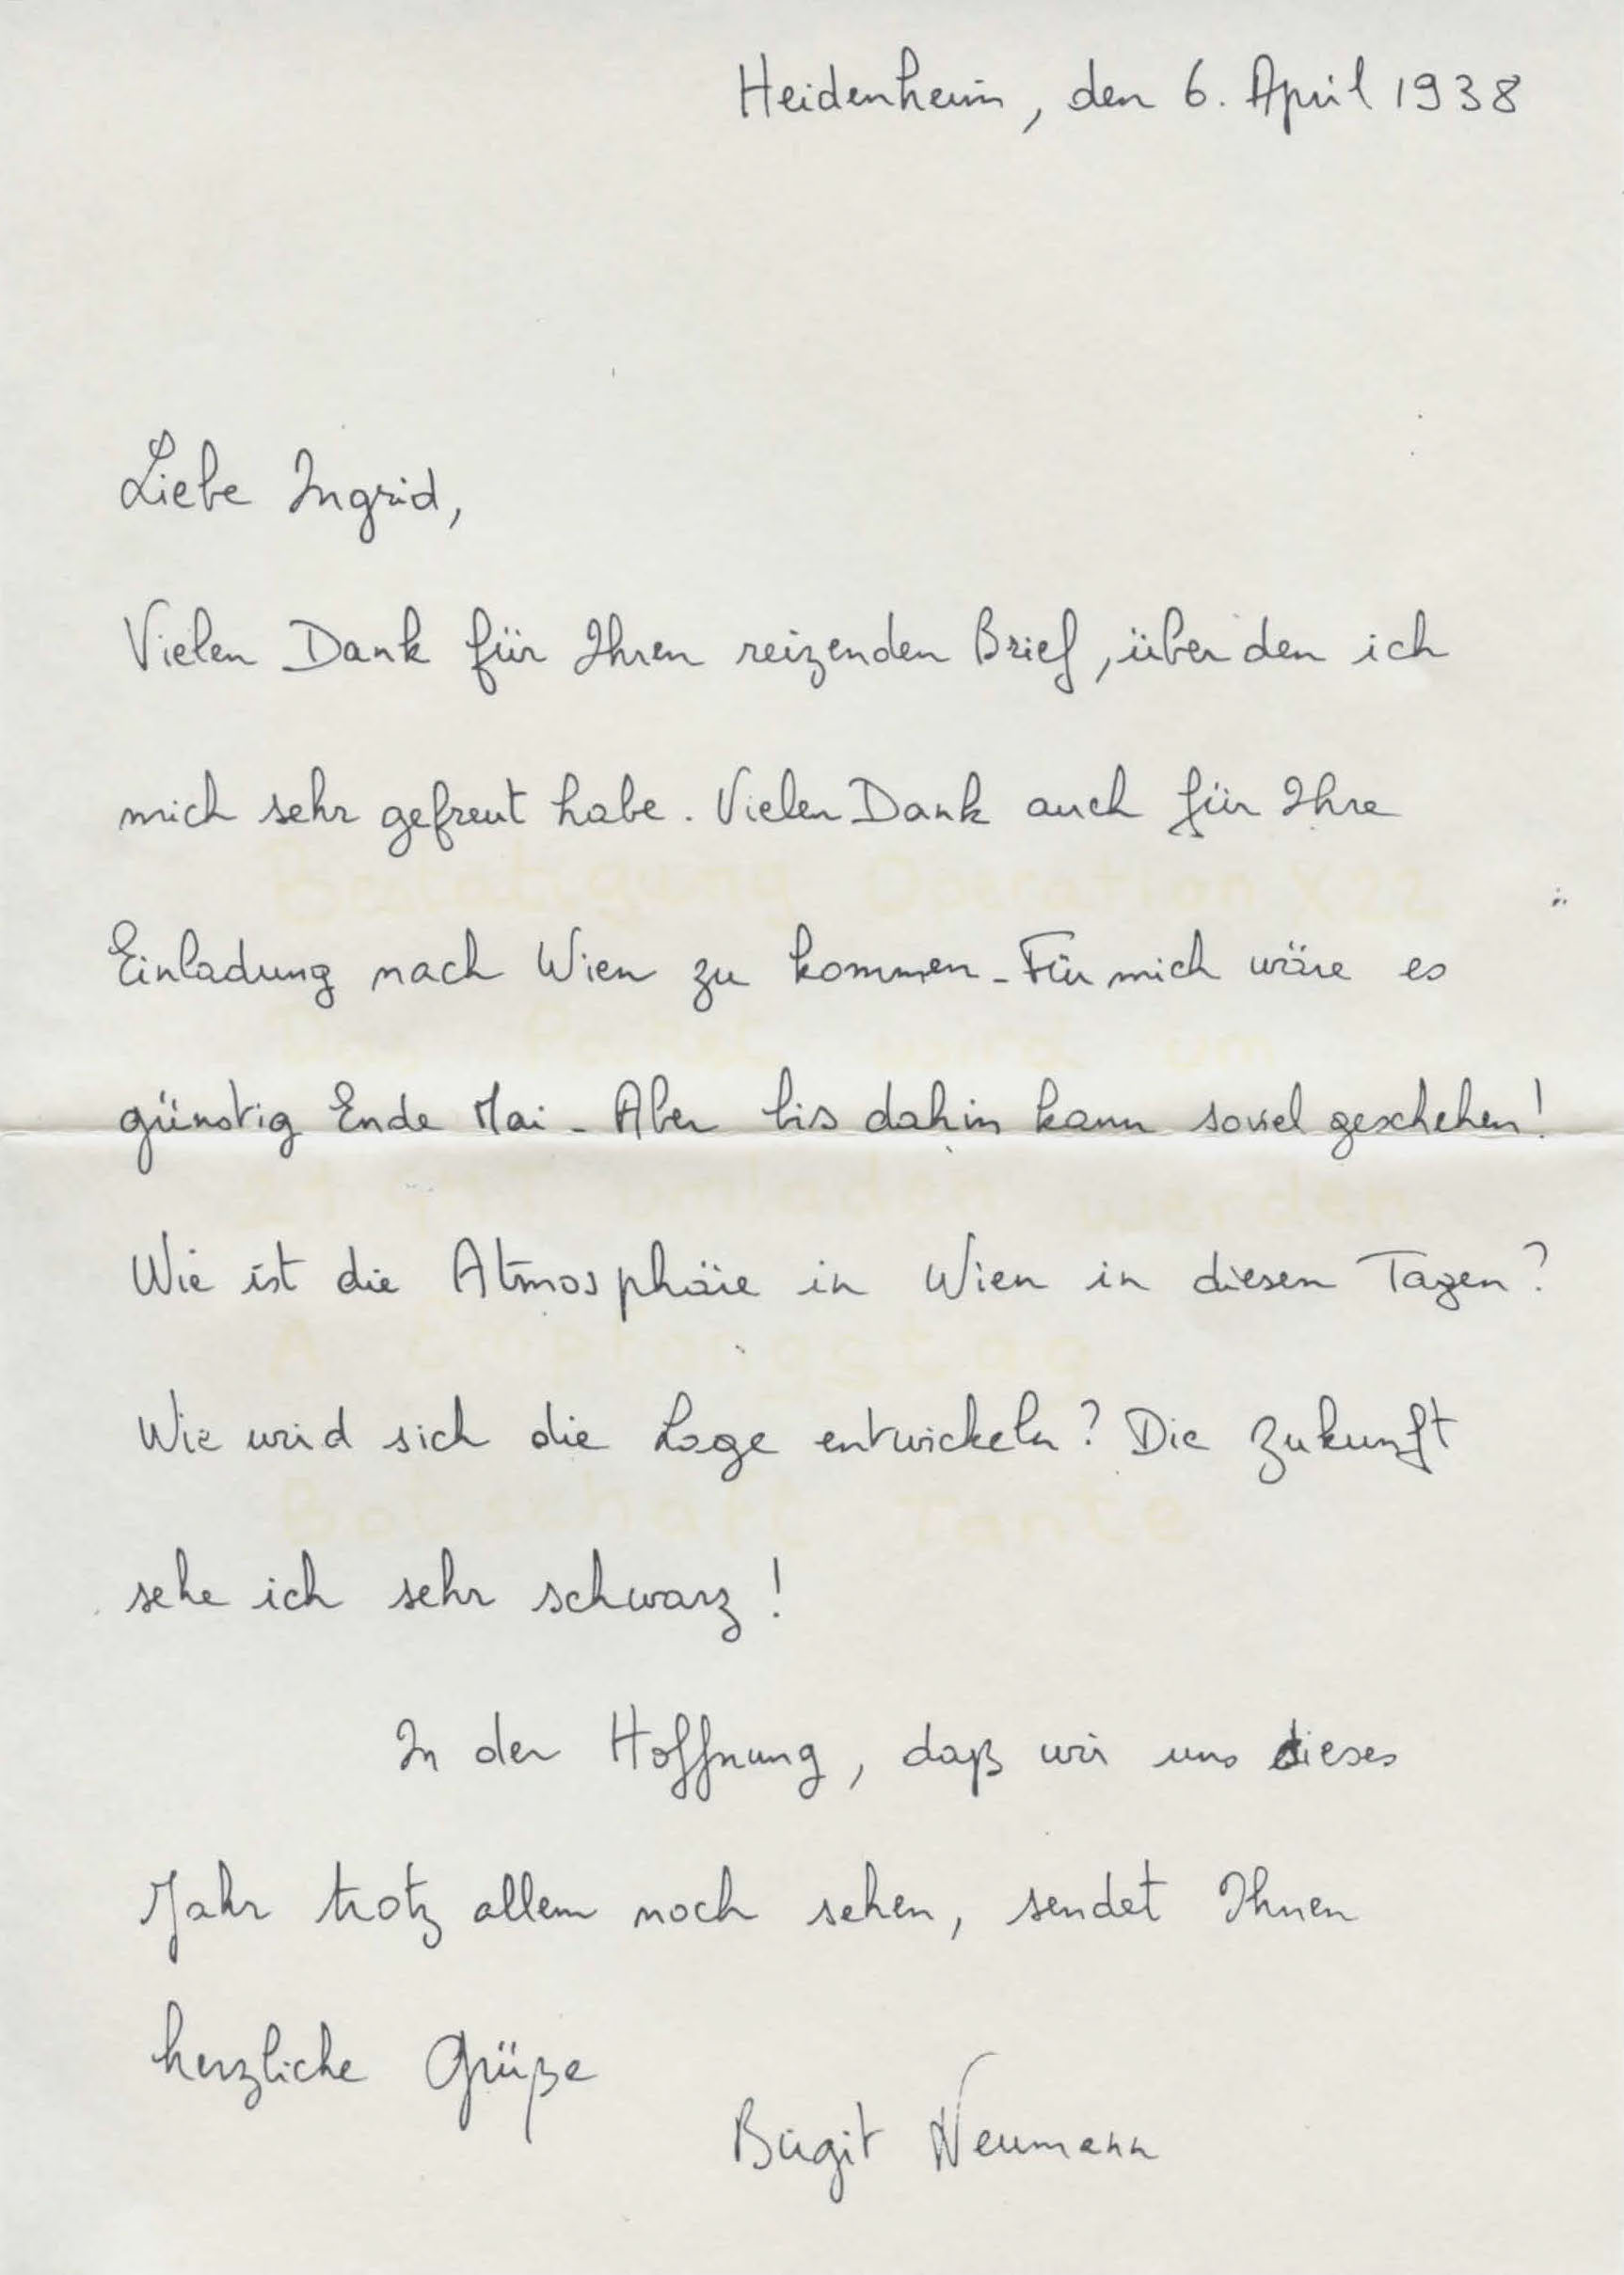 Heidenheim, den 6. April 1938
Liebe Ingrid,
Vielen Dank für Ihren reizenden Brief, über den ich
mich sehr gefreut habe. Vielen Dank auch für Ihre
Bestätigung Operation X22
Einladung nach Wien zu kommen - Für mich wäre es
um
günstig Ende Mai - Aber bis dahin kann soviel geschehen!
umladen werden
Wie ist die Atmosphäre in Wien in diesen Tagen?
A Empfangstag
Wie wird sich die Lage entwickeln? Die Zukunft
Botschaft Tante
sehe ich sehr schwarz!
In der Hoffnung, daß wir uns dieses
Jahr trotz allem noch sehen, sendet Ihnen
herzliche Grüße
Birgit Neumann